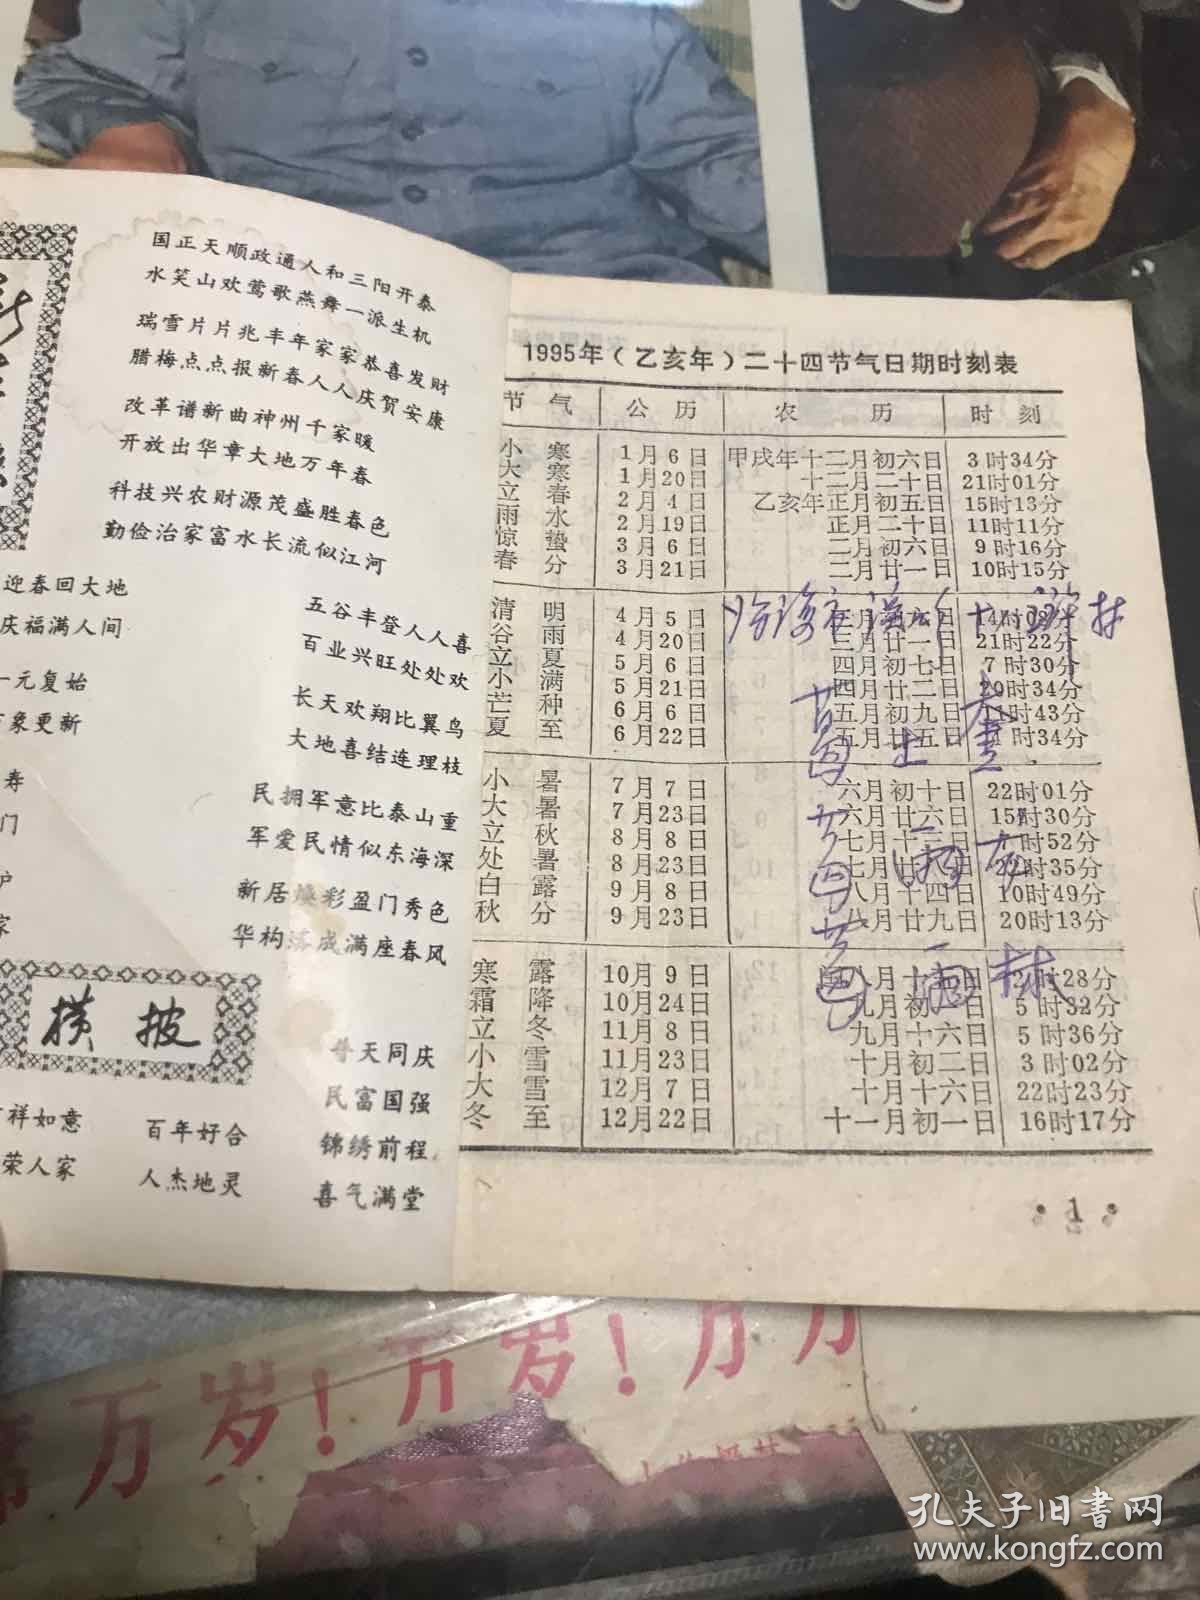 国正天顺政通人和三阳开泰
水笑山欢莺歌燕舞一派生机
瑞雪片片兆丰年家家恭喜发财
腊梅点点报新春人人庆贺安康
改革谱新曲神州千家暖
开放出华章大地万年春
科技兴农财源茂盛胜春色
勤俭治家富水长流似江河
迎春回大地
庆福满人间
一元复始
象更新
寿
门
炉
家
五谷丰登人人喜
百业兴旺处处欢
长天欢翔比翼鸟
大地喜结连理枝
民拥军意比泰山重
军爱民情似东海深
新居焕彩盈门秀色
华构落成满座春风
横披
祥如意
荣人家
百年好合
人杰地灵
普天同庆
民富国强
锦绣前程
喜气满堂
1995年(乙亥年)二十四节气日期时刻表
节气 公历 农历 时刻
小寒 1月6日 甲戌年十二月初六日 3时34分
大寒 1月20日 十二月二十日 21时01分
立春 2月4日 乙亥年正月初五日 15时13分
雨水 2月19日 正月二十日 11时11分
惊蛰 3月6日 二月初六日 9时16分
春分 3月21日 二月廿一日 10时15分
清明 4月5日 三月初六日 14时08分
谷雨 4月20日 三月廿一日 21时22分
立夏 5月6日 四月初七日 7时30分
小满 5月21日 四月廿二日 20时34分
芒种 6月6日 五月初九日 11时43分
夏至 6月22日 五月廿五日 时34分
小暑 7月7日 六月初十日 22时01分
大暑 7月23日 六月廿六日 15时30分
立秋 8月8日 七月十三日 时52分
处暑 8月23日 七月廿八日 22时35分
白露 9月8日 八月十四日 10时49分
秋分 9月23日 八月廿九日 20时13分
寒露 10月9日 闰八月十五日 2时28分
霜降 10月24日 九月初一日 5时32分
立冬 11月8日 九月十六日 5时36分
小雪 11月23日 十月初二日 3时02分
大雪 12月7日 十月十六日 22时23分
冬至 12月22日 十一月初一日 16时17分
·1·
席万岁!万岁!万万
孔夫子旧书网
www.kongfz.com